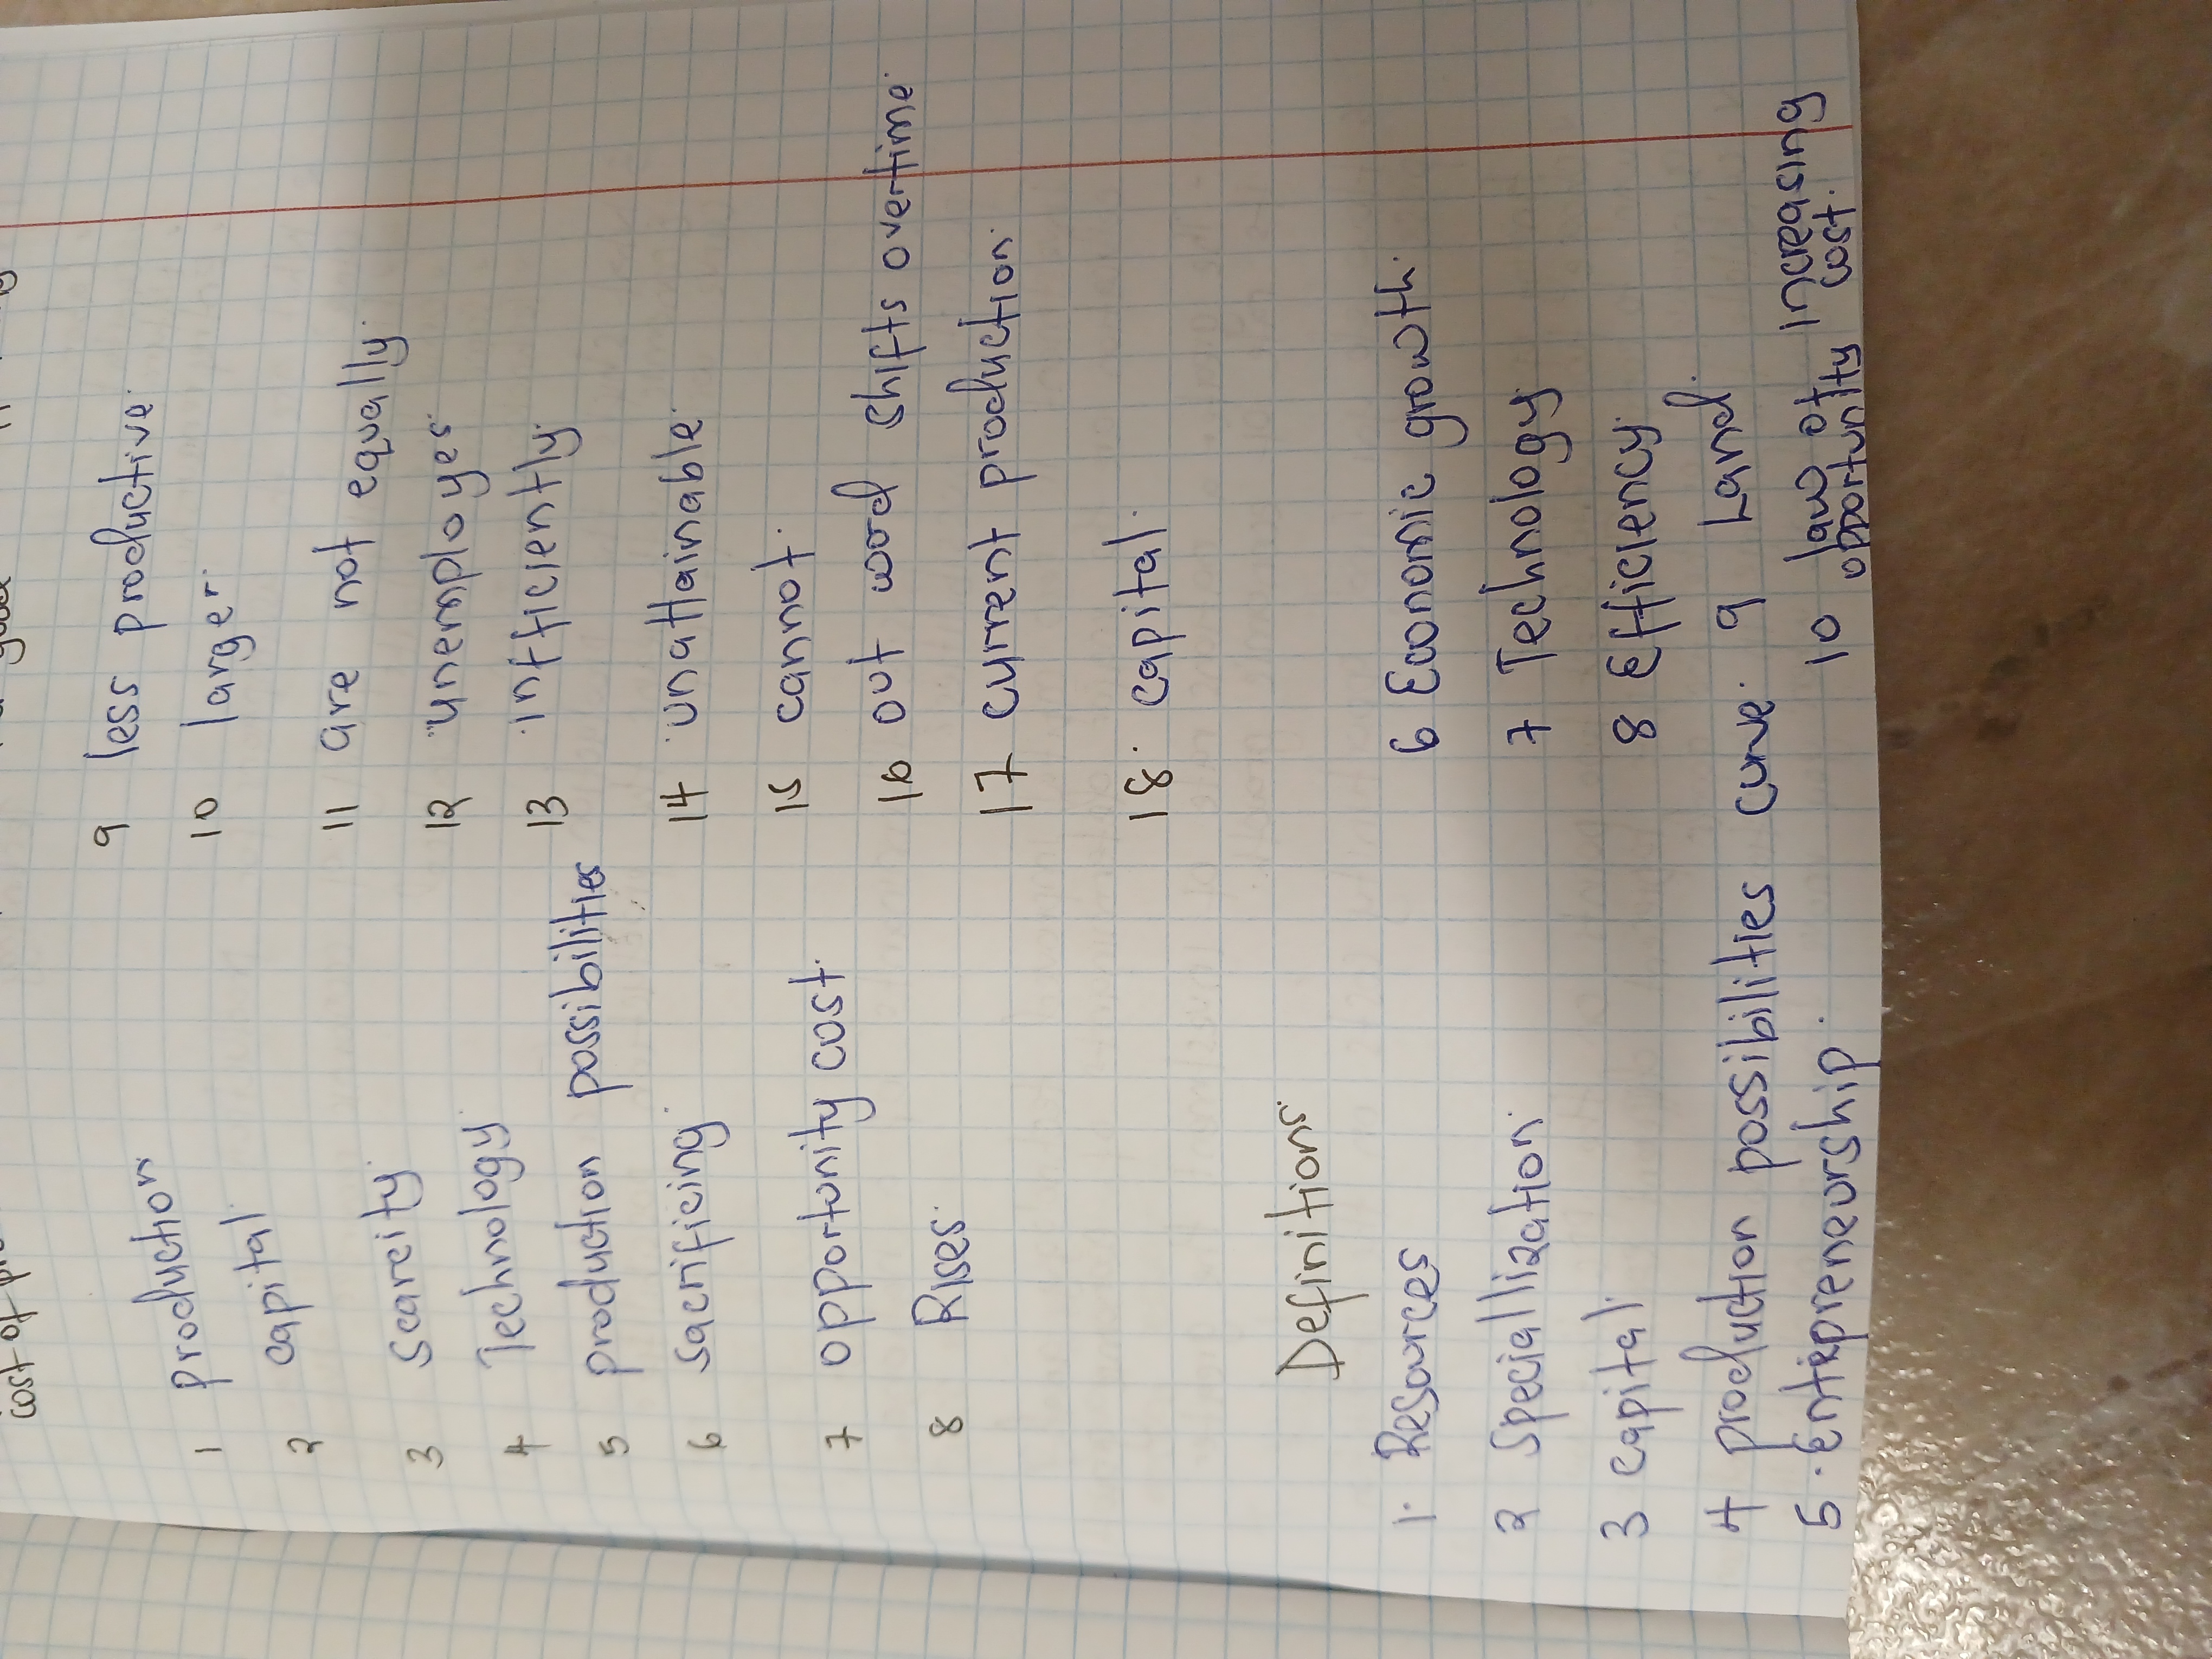 cost of
1 production
2 capital.
3 scarcity.
4 Technology.
5 production possibilities
6 sacrificing.
7 opportunity cost.
8 Rises.
9 less productive.
10 larger.
11 are not equally.
12 unemployes.
13 infficiently.
14 unattainable.
15 cannot.
16 out word shifts overtime.
17 current production.
18. capital.
Definitions.
1. Resources
2 Speciallization.
3 capital.
4 production possibilities curve.
5. Entrepreneurship.
6 Economic growth.
7 Technology
8 Efficiency.
9 Land.
10 law of increasing
opportunity cost.